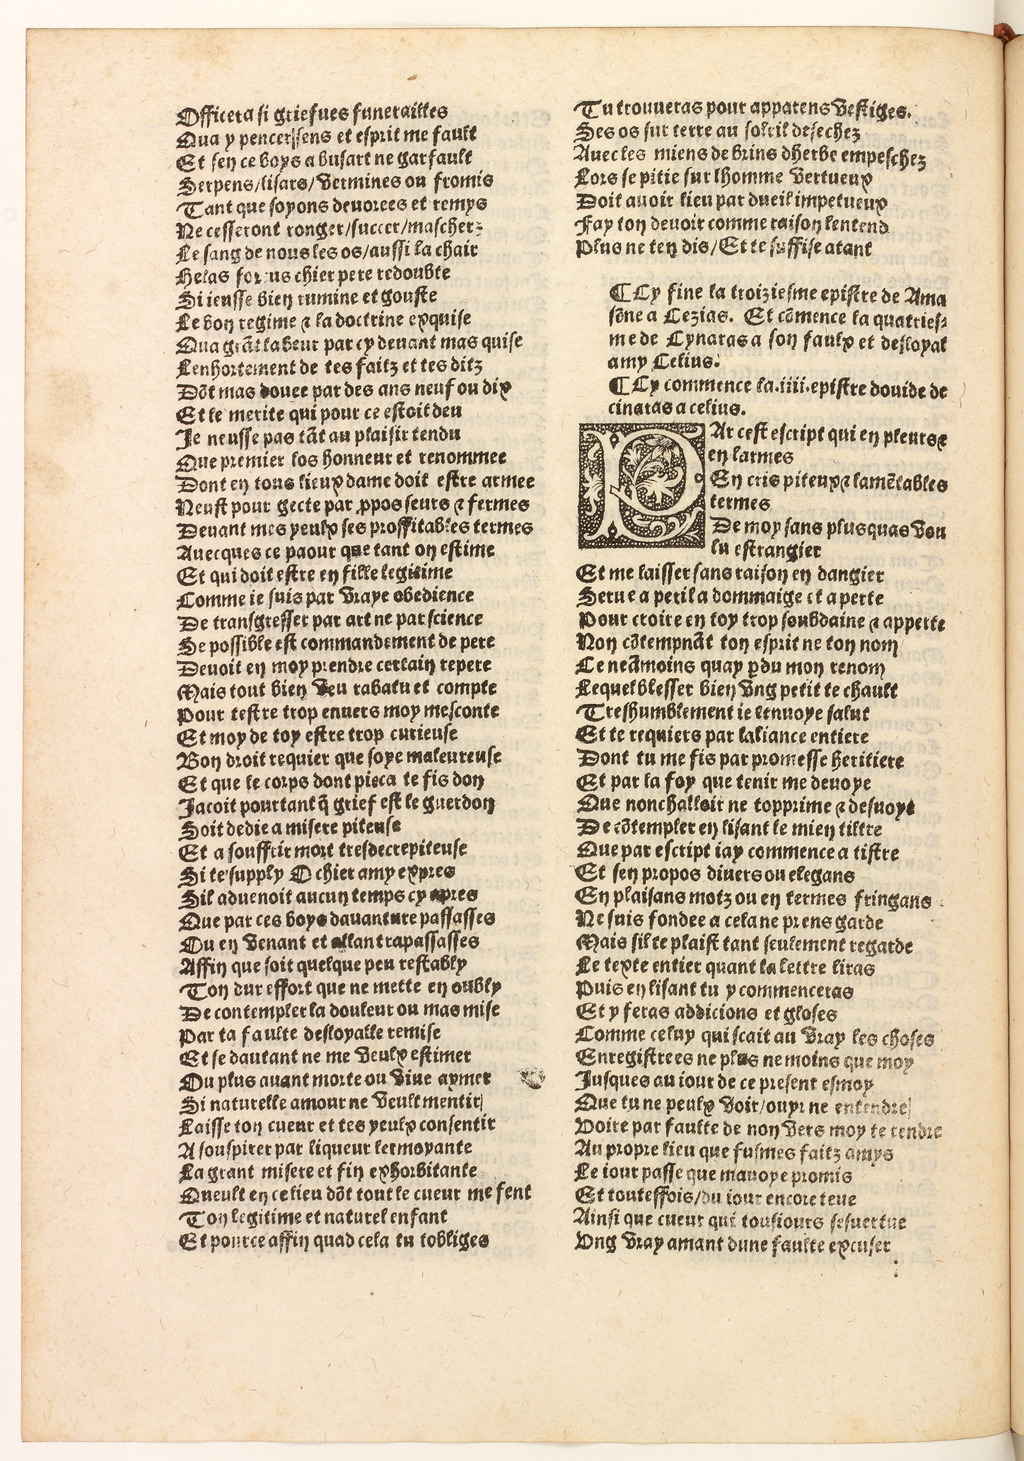 Officera si griefues funerailles
Qua y pencer/sens et esprit me fault
Et sen ce boys a busart ne garfault
Serpens/lisars/vermines ou fromis
Tant que soyons deuorees et remys
Ne cesseront ronger/succer/mascher
Le sang de nous les os/aussi la chair
Helas for us chier pere redoubte
Si ieusse bien rumine et gouste
Le bon regime ⁊ la doctrine exquise
Qua grāt labeur par cy deuant mas quise
Lenhortement de tes faitz et tes ditz
Dōt mas douee par des ans neuf ou dix
Et le merite qui pour ce estoit deu
Je neusse pas tāt au plaisir tendu
Que premier los honneur et renommee
Dont en tous lieux dame doit estre armee
Neust pour gecte par ꝓpos seurs ⁊ fermes
Deuant mes yeulx ses proffitables termes
Auecques ce paour que tant on estime
Et qui doit estre en fille legitime
Comme ie suis par vraye obedience
De transgresser par art ne par science
Se possible est commandement de pere
Deuoit en moy prendre certain repere
Mais tout bien veu rabatu et compte
Pour testre trop enuers moy mesconte
Et moy de toy estre trop curieuse
Bon droit requier que soye maleureuse
Et que le corps dont pieca te fis don
Jacoit pourtant q̄ grief est le guerdon
Soit dedie a misere piteuse
Et a souffrir mort tresdecrepiteuse
Si te supply O chier amy expres
Sil aduenoit aucun temps cy apres
Que par ces boys dauanture passasses
Ou en venant et allant rapassasses
Affin que soit quelque peu restably
Ton dur effort que ne mette en oubly
De contempler la douleur ou mas mise
Par ta faulte desloyalle remise
Et se dautant ne me veulx estimer
Ou plus auant morte ou viue aymer
Si naturelle amour ne veult mentir
Laisse ton cueur et tes yeulx consentir
A souspirer par liqueur lermoyante
La grant misere et fin exhorbitante
Queult en ce lieu dōt tout le cueur me fent
Ton legitime et naturel enfant
Et pource affin quad cela tu tobliges
Tu trouueras pour apparens vestiges.
Ses os sur terre au soleil desechez
Auec les miens de brins dherbe empeschez
Lors se pitie sur lhomme vertueux
Doit auoir lieu par dueil impetueux
Fay ton deuoir comme raison lentend
Plus ne ten dis/Et te suffise atant
¶Cy fine la troiziesme epistre de Ama
sōne a Cezias. Et cōmence la quatries-
me de Cynaras a son faulx et desloyal
amy Celius.
¶Cy commence la .iiii. epistre douide de
cinaras a celius.
PAr cest escript qui en pleurs ⁊
en larmes
En cris piteux ⁊ lamētables
termes
De moy sans plus quas vou
lu estrangier
Et me laisser sans raison en dangier
Serue a peril a dommaige et a perte
Pour croire en toy trop soubdaine ⁊ apperte
Non cōtempnāt ton esprit ne ton nom
Ce neāmoins quay ꝑdu mon renom
Lequel blesser bien vng petit te chault
Treshumblement ie tenuoye salut
Et te requiers par laliance entiere
Dont tu me fis par promesse heritiere
Et par la foy que tenir me deuoye
Que nonchalloir ne topprime ⁊ desuoye
De cōtempler en lisant le mien tiltre
Que par escript iay commence a tistre
Et sen propos diuers ou elegans
En plaisans motz ou en termes fringans
Ne suis fondee a cela ne prens garde
Mais sil te plaist tant seulement regarde
Le texte entier quant la lettre liras
Puis en lisant tu y commenceras
Et y feras addicions et gloses
Comme celuy qui scait au vray les choses
Enregistrees ne plus ne moins que moy
Jusques au iour de ce present esmoy
Que tu ne peulx voir/ouyr ne entendre
Voire par faulte de non vers moy te rendre
Au propre lieu que fusmes faitz amys
Le iour passe que mauoye promis
Et touteffois/du iour encore teue
Ainsi que cueur qui tousiours sesuertue
Vng vray amant dune faulte excuser